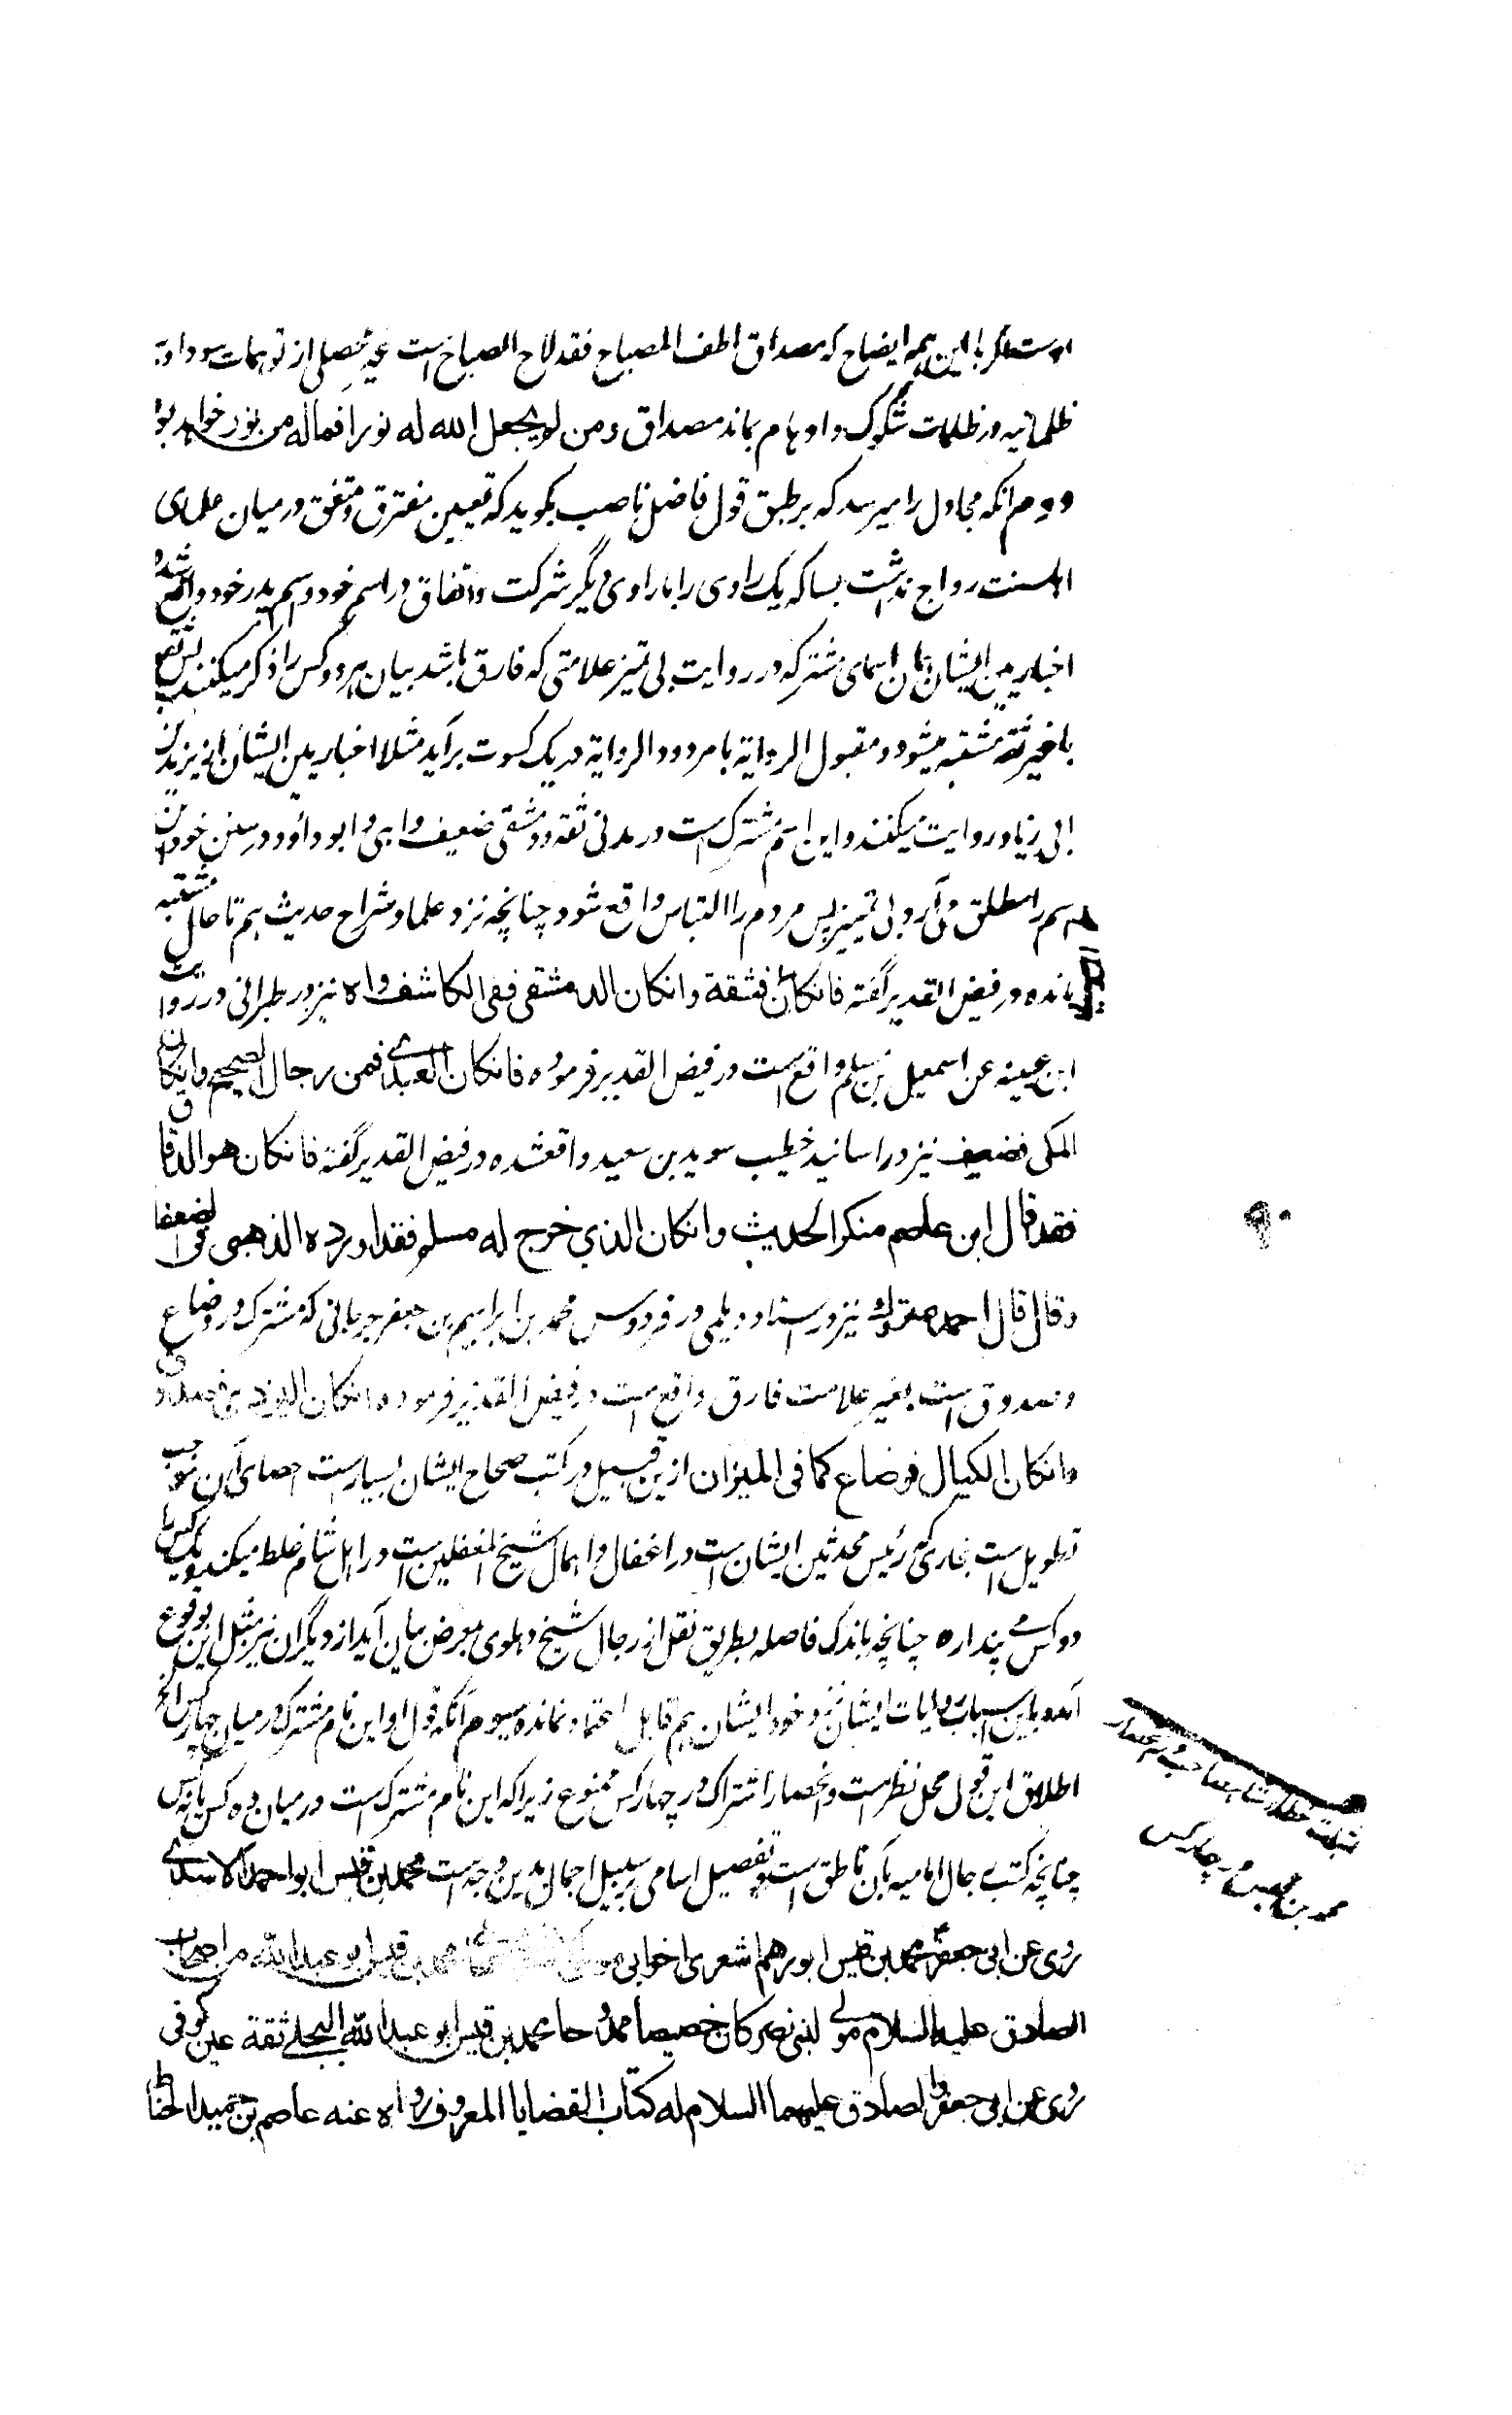 است اگر با این همه ایضاح که مصداق اطف المصباح فقد لاح الصباح است غیر متصلی از توهمات سوداویه
ظلمانیه در ظلمات شکوک و اوهام بماند مصداق و من لم یجعل الله له نورا فما له من نور خواهد بود
دوم آنکه مجادل را میرسد که بر طبق قول فاضل ناصب بگوید که تعیین مفترق و متفق در میان علمای
اهلسنت رواج نداشت بسا که یک راوی را با راوی دیگر شرکت و اتفاق در اسم خود و اسم پدر خود واقع شده
اخباریین ایشان بآن اسمای مشترکه در روایت بی تمیز علامتی که فارق باشد بیان هر دو کس را ذکر میکنند پس ثقه
با غیر ثقه مشتبه میشود و مقبول الروایة با مردود الروایة در یک کسوت برآید مثلا اخباریین ایشان از یزید بن
ابی زیاد روایت میکنند و این اسم مشترک است در مدنی ثقه و دمشقی ضعیف واهی و ابو داود در سنن خود این
اسم را مطلق می آرد بی تمییز پس مردم را التباس واقع شود چنانچه نزد علما و شراح حدیث هم تا حال مشتبه
مانده در فیض القدیر گفته فانکان فثقة وانکان الدمشقی ففی الکاشف واه نیز در طبرانی در روایت
ابن عیینه عن اسمعیل بن مسلم واقع است در فیض القدیر فرموده فانکان العبدی فمن رجال الصحیح وانکان
المکی فضعیف نیز در اسانید خطیب سوید بن سعید واقعشده در فیض القدیر گفته فانکان هو الدقاق
فقد قال ابن عاصم منکر الحدیث وانکان الذی خرج له مسلم فقد اورده الذهبی فی الضعفا
وقال قال احمد متروک نیز در اسناد دیلمی در فردوس محمد بن ابراهیم بن جعفر جرجانی که مشترک در وضاع
و صدوق است بغیر علامت فارق واقع است در فیض القدیر فرموده انکان الیزدی فصدوق
وانکان الکیال فوضاع کما فی المیزان ازین قبیل در کتب صحاح ایشان بسیار است احصای آن موجب
تطویل است بخاری که رئیس محدثین ایشان است در اغفال و اهمال شیخ المغفلین است در اهل شام غلط میکند و یک کس را
دو کس می پندارد چنانچه باندک فاصله بطریق نقل از رجال شیخ دهلوی بمعرض بیان آید از دیگران نیز مثل این بوقوع
آمده باین اسباب روایات ایشان نزد خود ایشان هم قابل اعتماد نمانده سیوم آنکه قول او این نام مشترک در میان چهار کس الخ
اطلاق این قول محل نظر است و انحصار اشتراک در چهار کس ممنوع زیرا که این نام مشترک است در میان ده کس
چنانچه کتب رجال امامیه بآن ناطق است و تفصیل اسامی بر سبیل اجمال بدین وجه است محمد بن قیس ابو احمد الاسدی
روی عن ابی جعفر محمد بن قیس ابو رهم اشعری اخو ابی موسی محمد بن قیس ابو عبد الله من اصحاب
الصادق علیه السلام مولی لبنی نصر کان خصیصا ممدوحا محمد بن قیس ابو عبد الله البجلی ثقة عین کوفی
روی عن ابی جعفر والصادق علیهما السلام له کتاب القضایا المعروف رواه عنه عاصم بن حمید الحناط
محمد بن در چهار کس
۹۰